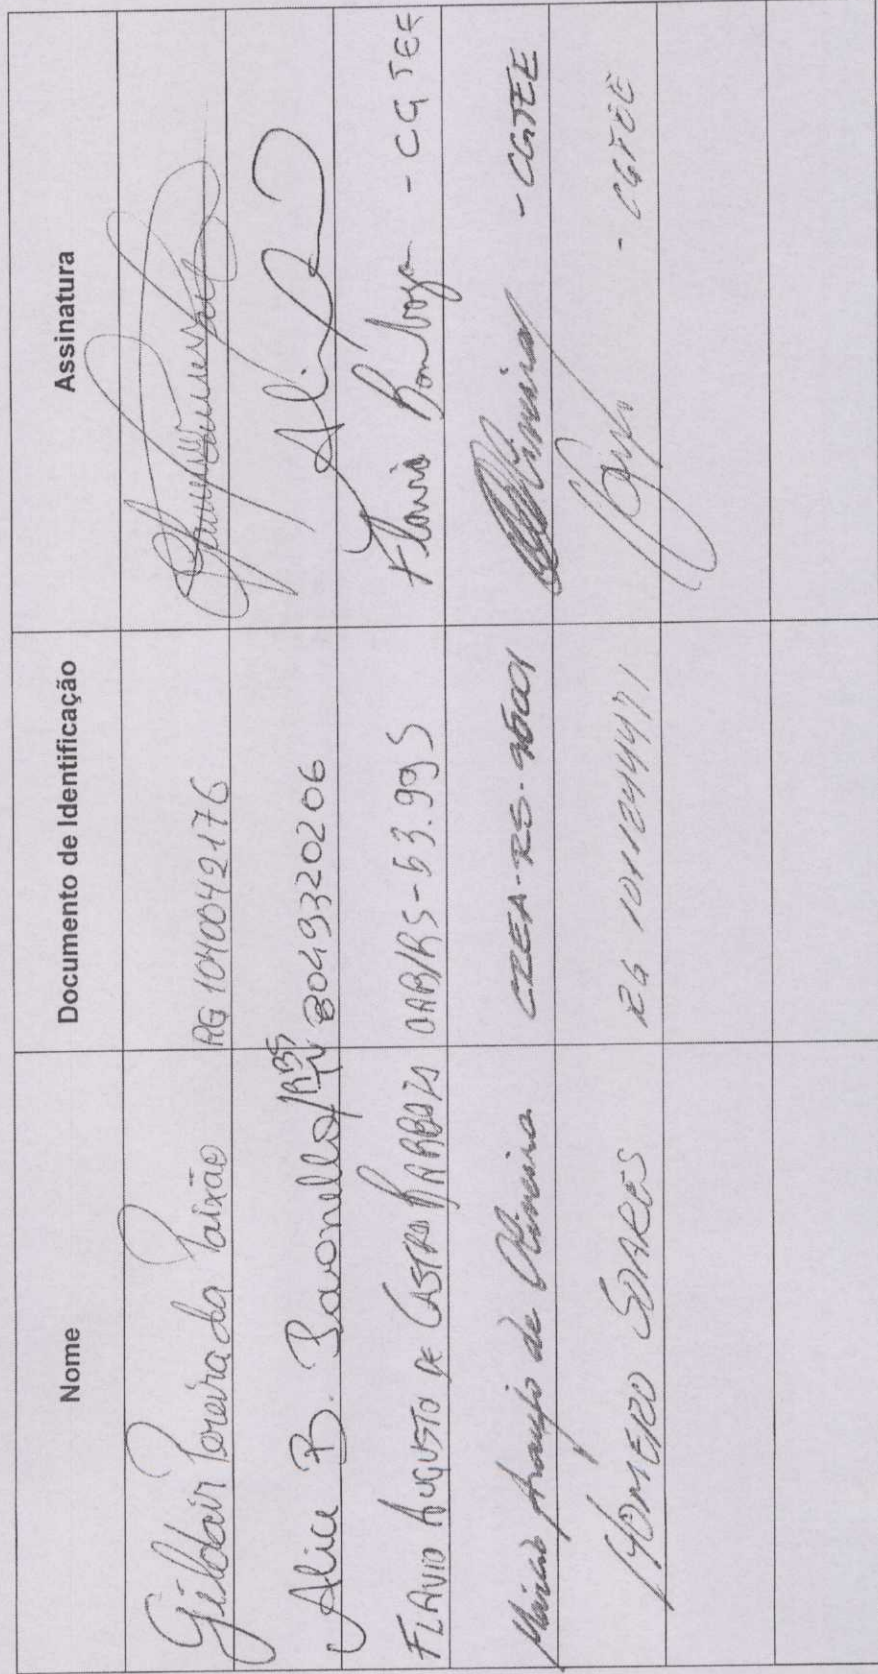 Nome Documento de Identificação Assinatura
Gildair Pereira da Paixão RG 1040042176
Alice B. Pavonello/RBS TV 8049320206 Alice
FLAVIO AUGUSTO DE CASTRO BARBOZA OAB/RS-53.995 Flavio Barboza - CGTEE
Marcio Araujo de Oliveira CREA-RS- - CGTEE
HOMERO SOARES RG 1011244971 - CGTEE